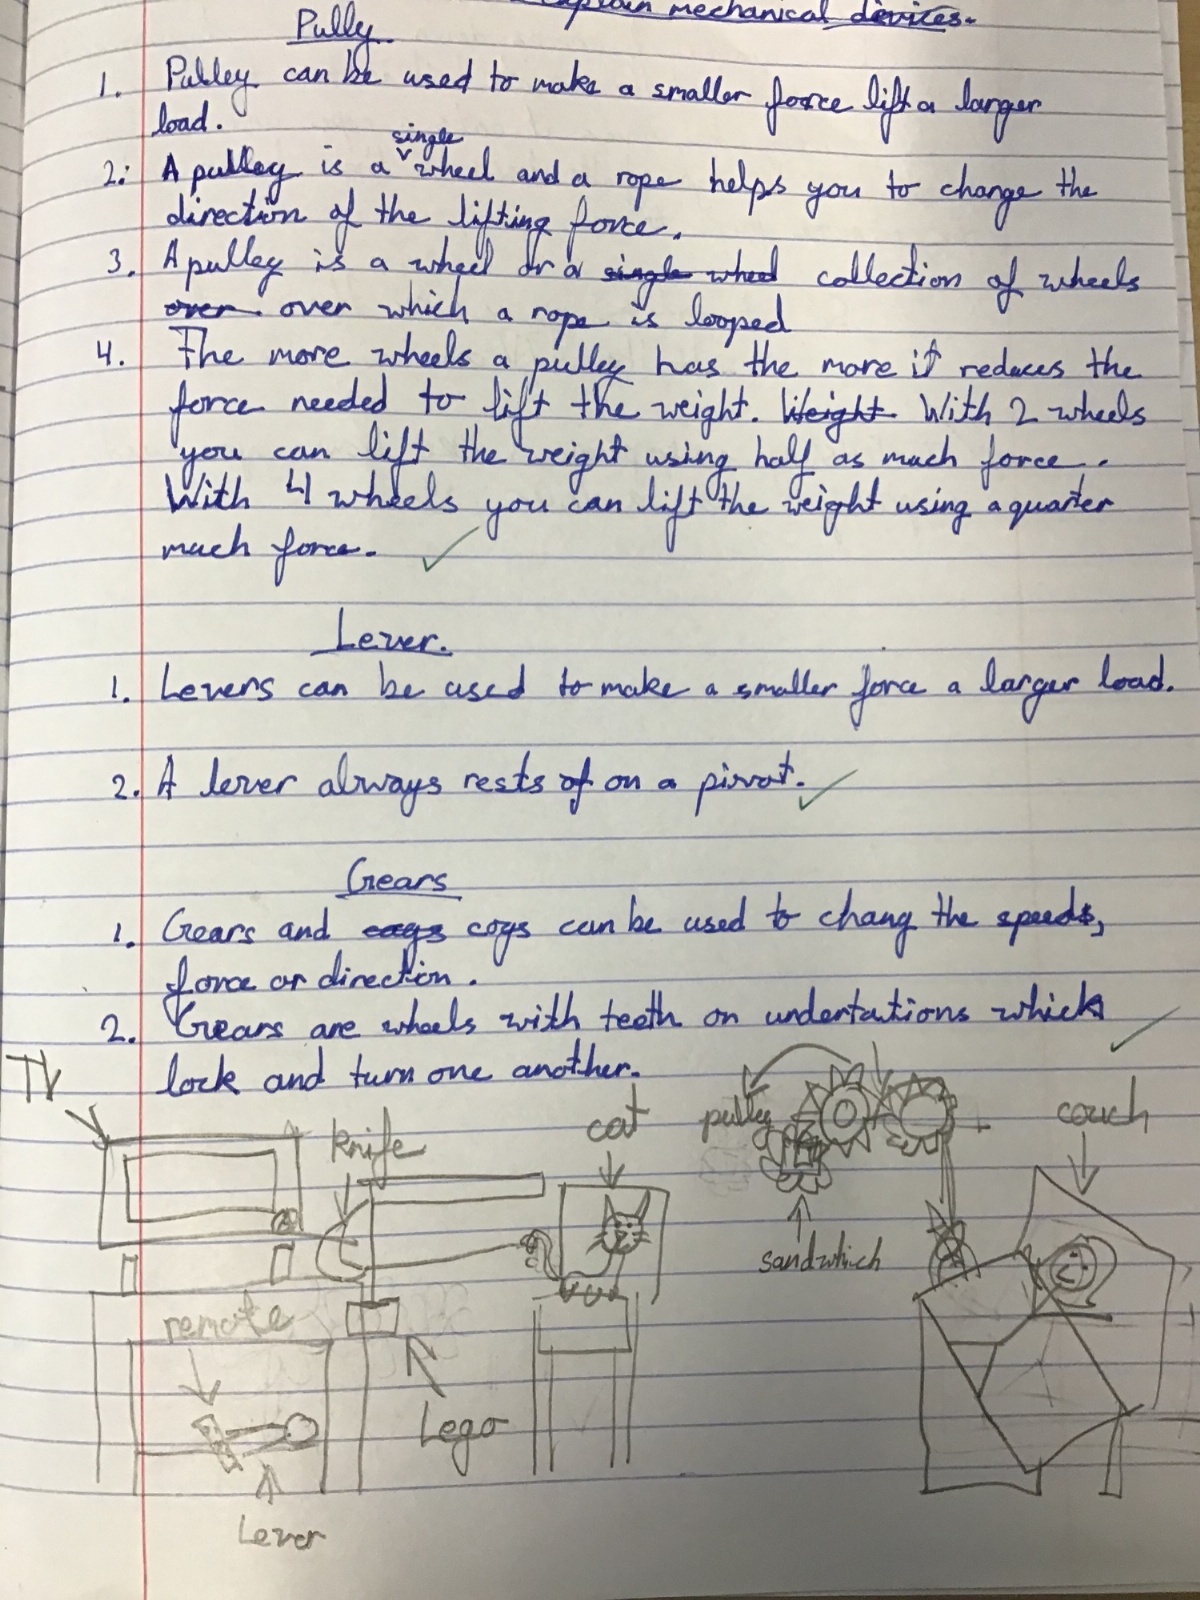 explain mechanical devices.
Pully
1. Pulley can be used to make a smaller force lift a larger
load.
single
2. A pulley is a wheel and a rope helps you to change the
direction of the lifting force.
3. A pulley is a wheel or a single wheel collection of wheels
over over which a rope is looped
4. The more wheels a pulley has the more it reduces the
force needed to lift the weight. Weight With 2 wheels
you can lift the weight using half as much force.
With 4 wheels you can lift the weight using a quarter
much force.
Lever.
1. Levers can be used to make a smaller force a larger load.
2. A lever always rests of on a pivot.
Gears
1. Gears and cogs can be used to chang the speeds,
force or direction.
2. Gears are wheels with teeth on undertations which
lock and turn one another.
TV
knife
cat
pulley
couch
sandwhich
remote
Lego
Lever